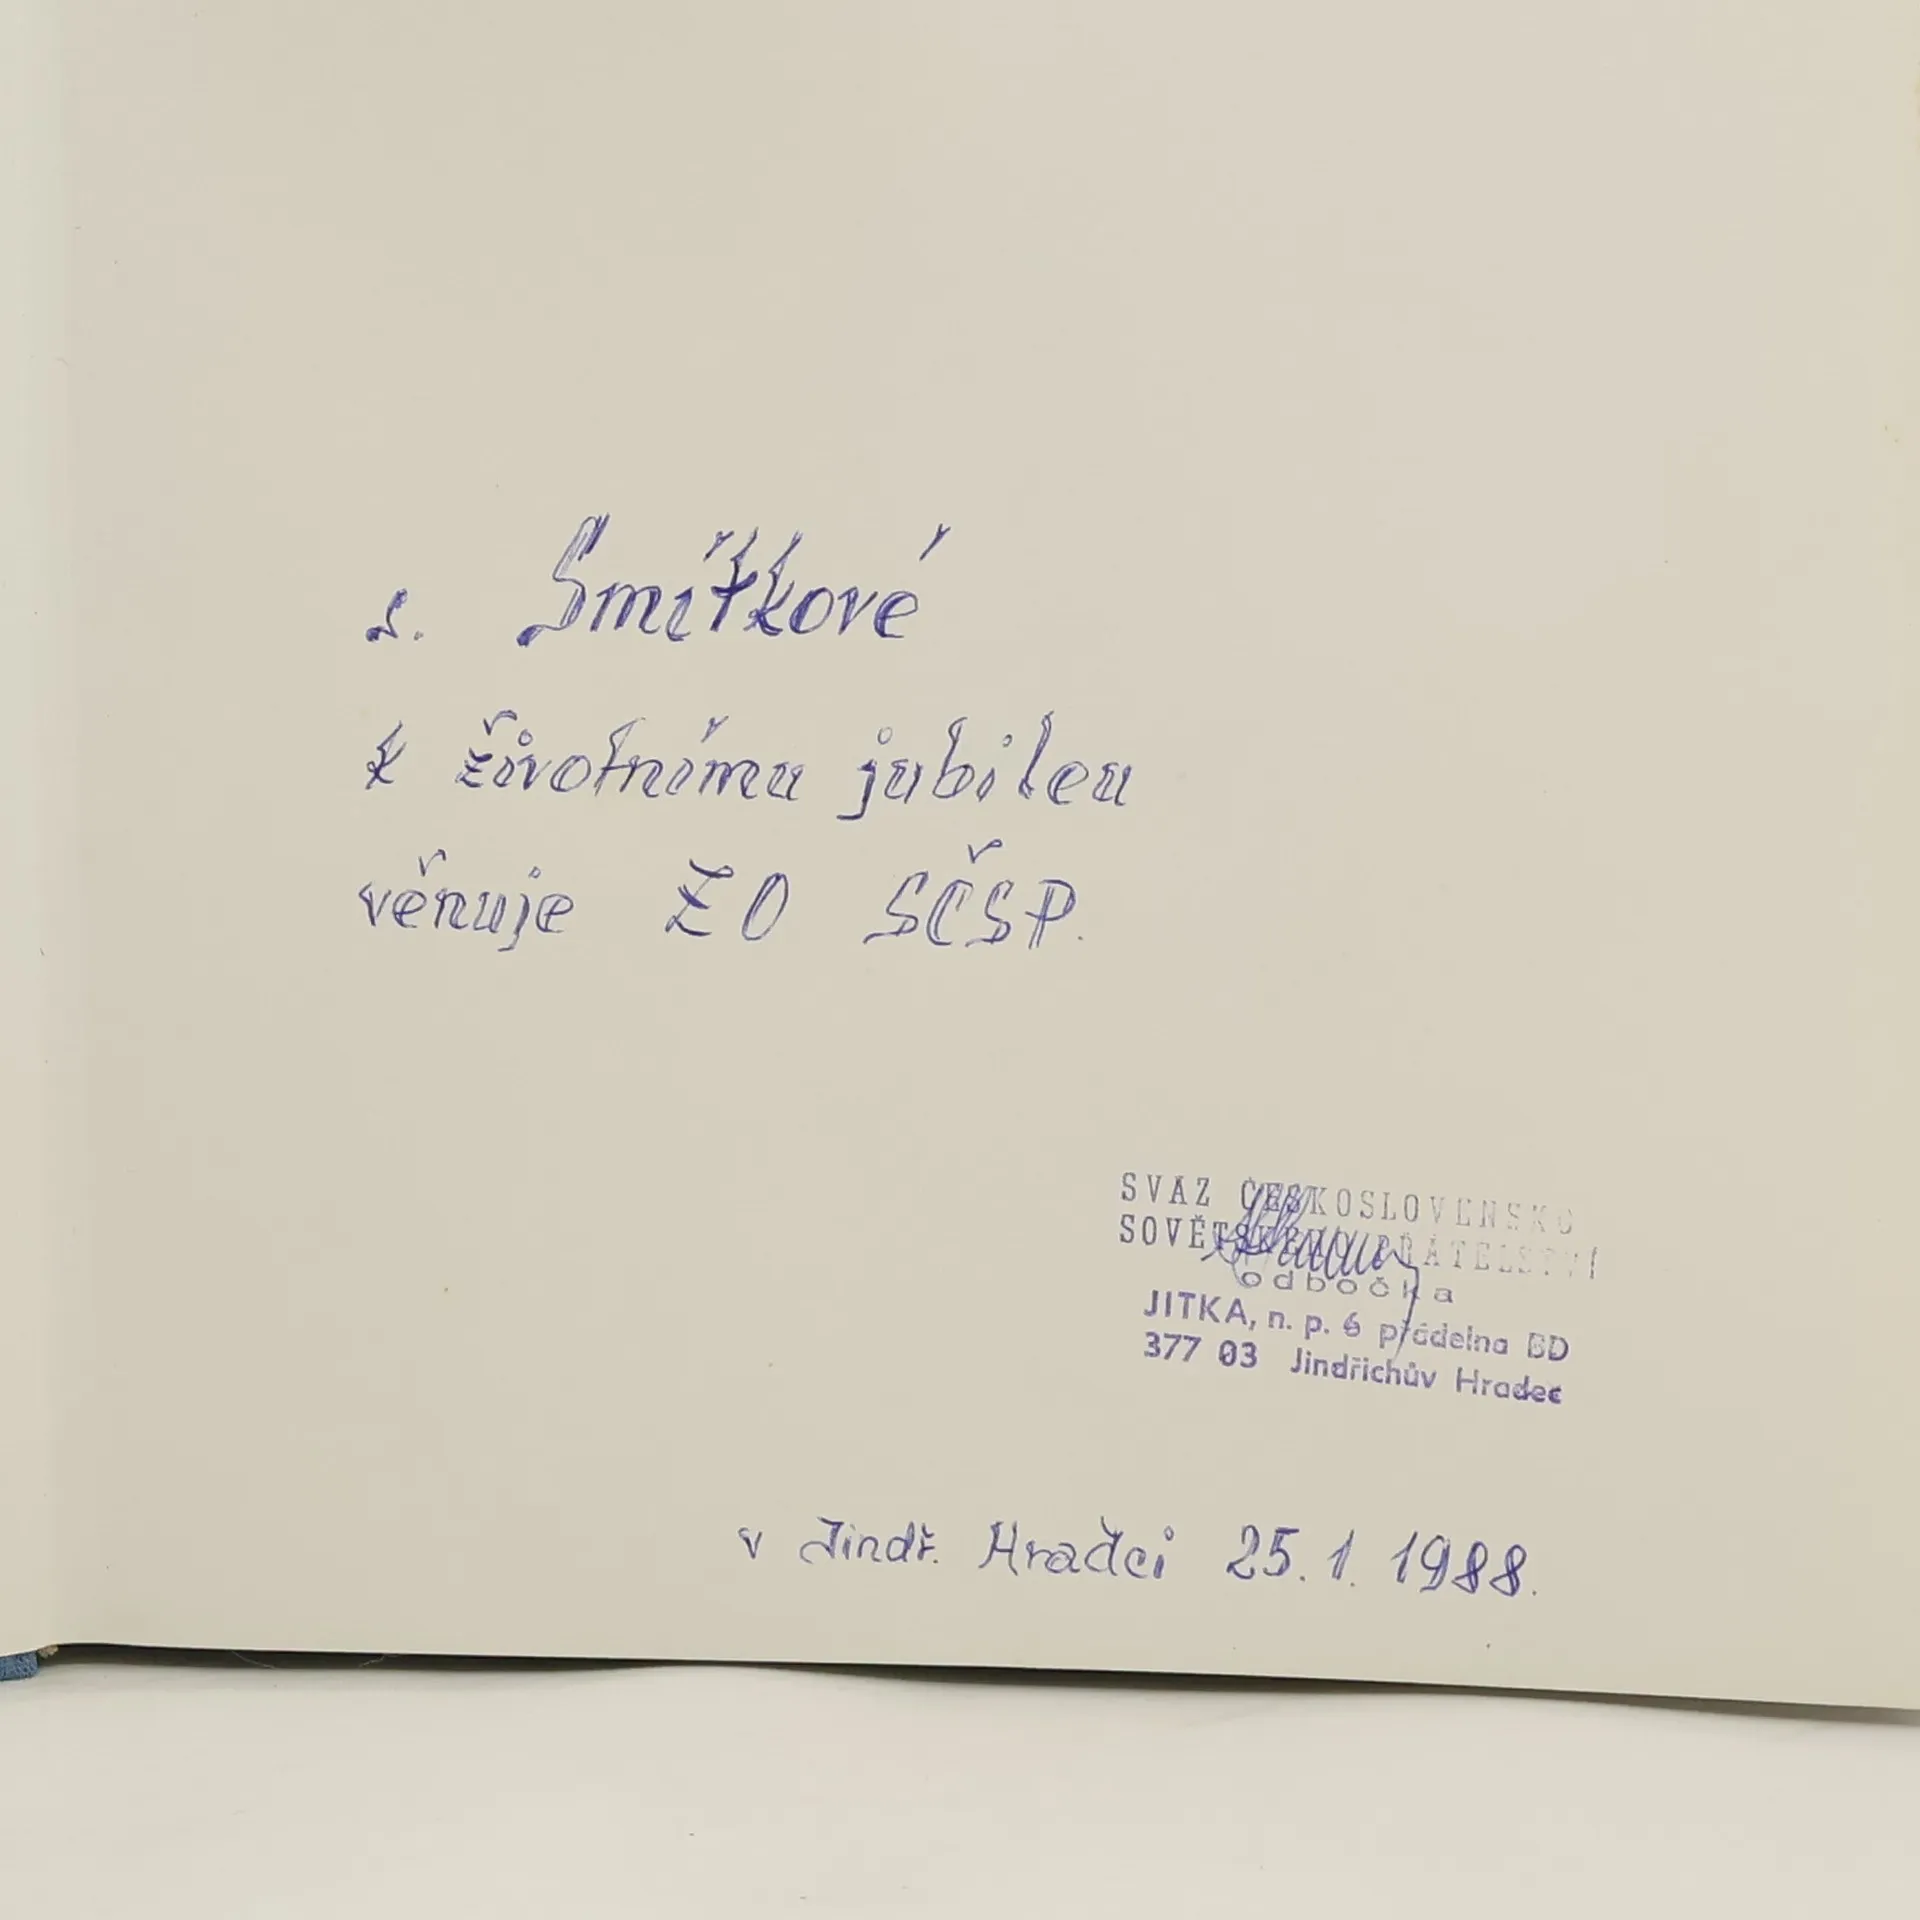 s. Smítkové
k životnímu jubileu
věnuje ZO SČSP.
SVAZ ČESKOSLOVENSKO
SOVĚTSKÉHO PŘÁTELSTVÍ
odbočka
JITKA, n. p. 6 přádelna BD
377 03 Jindřichův Hradec
v Jindř. Hradci 25. 1. 1988.